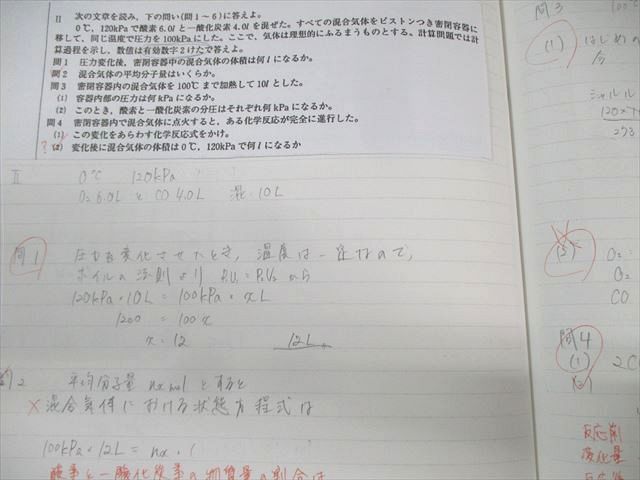 II 次の文章を読み，下の問い(問1～6)に答えよ。
0℃，120kPaで酸素6.0lと一酸化炭素4.0lを混ぜた。すべての混合気体をピストンつき密閉容器に
移して，同じ温度で圧力を100kPaにした。ここで，気体は理想的にふるまうものとする。計算問題では計
算過程を示し，数値は有効数字2けたで答えよ。
問1 圧力変化後，密閉容器中の混合気体の体積は何lになるか。
問2 混合気体の平均分子量はいくらか。
問3 密閉容器内の混合気体を100℃まで加熱して10lとした。
(1) 容器内部の圧力は何kPaになるか。
(2) このとき，酸素と一酸化炭素の分圧はそれぞれ何kPaになるか。
問4 密閉容器内で混合気体に点火すると，ある化学反応が完全に進行した。
(1) この変化をあらわす化学反応式をかけ。
? (2) 変化後に混合気体の体積は0℃，120kPaで何lになるか
II 0℃ 120kPa
O2 6.0L と CO 4.0L 混:10L
問1 圧力を変化させたとき，温度は一定なので，
ボイルの法則より P1V1=P2V2 から
120kPa×10L=100kPa×xL
1200=100x
x=12 12L
問2 平均分子量 nx mol とすると
×混合気体における状態方程式は
100kPa×12L=nx・(
酸素と一酸化炭素の物質量の割合は
問3
(1) はじめの
シャルル
273
(2) O2:
O2
CO
問4
(1) 2C
(2)
反応前
変化量
反応後